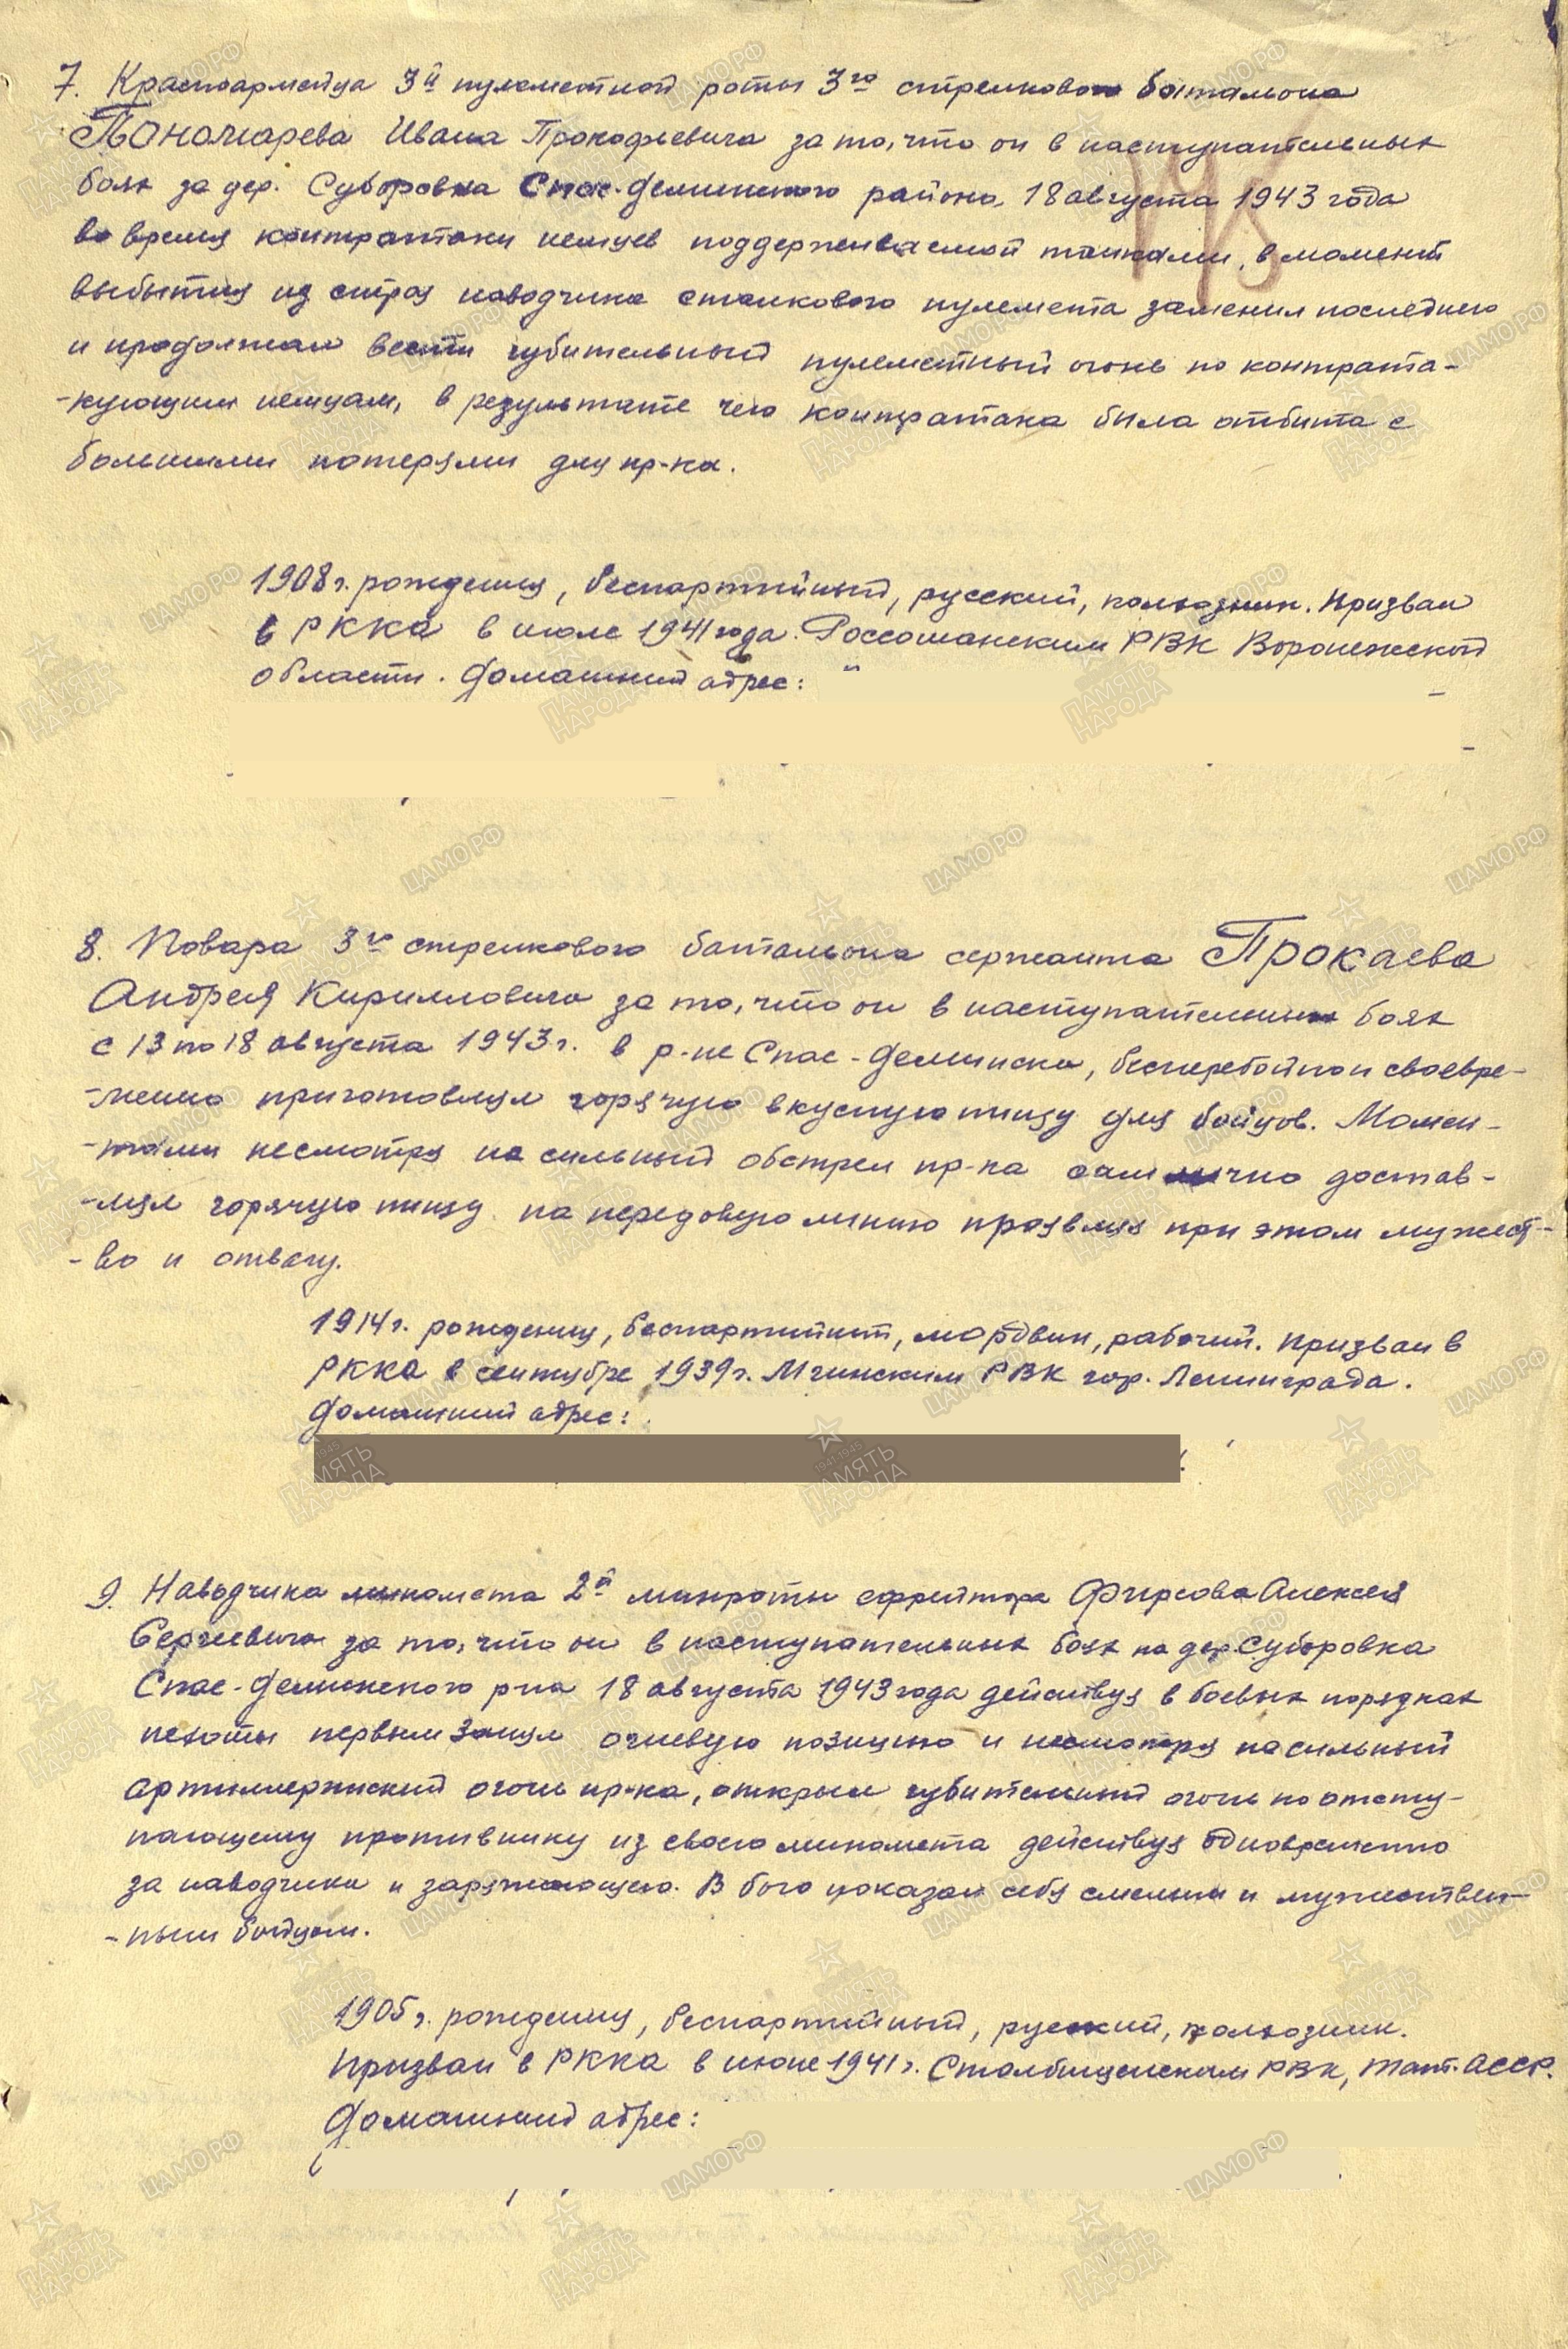 7. Красноармейца 3й пулеметной роты 3го стрелкового батальона
Пономарева Ивана Прокофьевича за то, что он в наступательных
боях за дер. Суборовка Спас-Деминского района, 18 августа 1943 года
во время контратаки немцев поддерживаемой танками, в момент
выбытия из строя наводчика станкового пулемета заменил последнего
и продолжал вести губительный пулеметный огонь по контрата-
-кующим немцам, в результате чего контратака была отбита с
большими потерями для пр-ка.
1908 г. рождения, беспартийный, русский, колхозник. Призван
в РККА в июле 1941 года. Россошанским РВК Воронежской
области. Домашний адрес:
8. Повара 3го стрелкового батальона сержанта Прокаева
Андрея Кирилловича за то, что он в наступательных боях
с 13 по 18 августа 1943 г. в р-не Спас-Деминска, бесперебойно и своевре-
-менно приготовлял горячую вкусную пищу для бойцов. Момен-
-тами несмотря на сильный обстрел пр-ка сам лично достав-
-лял горячую пищу на передовую линию проявляя при этом мужест-
-во и отвагу.
1914 г. рождения, беспартийный, мордвин, рабочий. Призван в
РККА в сентябре 1939 г. Мгинским РВК гор. Ленинграда.
Домашний адрес:
9. Наводчика миномета 2й минроты ефрейтора Фирсова Алексея
Сергеевича за то, что он в наступательных боях на дер. Суборовка
Спас-Деминского р-на 18 августа 1943 года действуя в боевых порядках
пехоты первым занял огневую позицию и несмотря на сильный
артиллерийский огонь пр-ка, открыл губительный огонь по отсту-
пающему противнику из своего миномета действуя одновременно
за наводчика и заряжающего. В бою показал себя смелым и мужествен-
-ным бойцом.
1905 г. рождения, беспартийный, русский, колхозник.
Призван в РККА в июне 1941 г. Столбищенским РВК, Тат. АССР.
Домашний адрес: